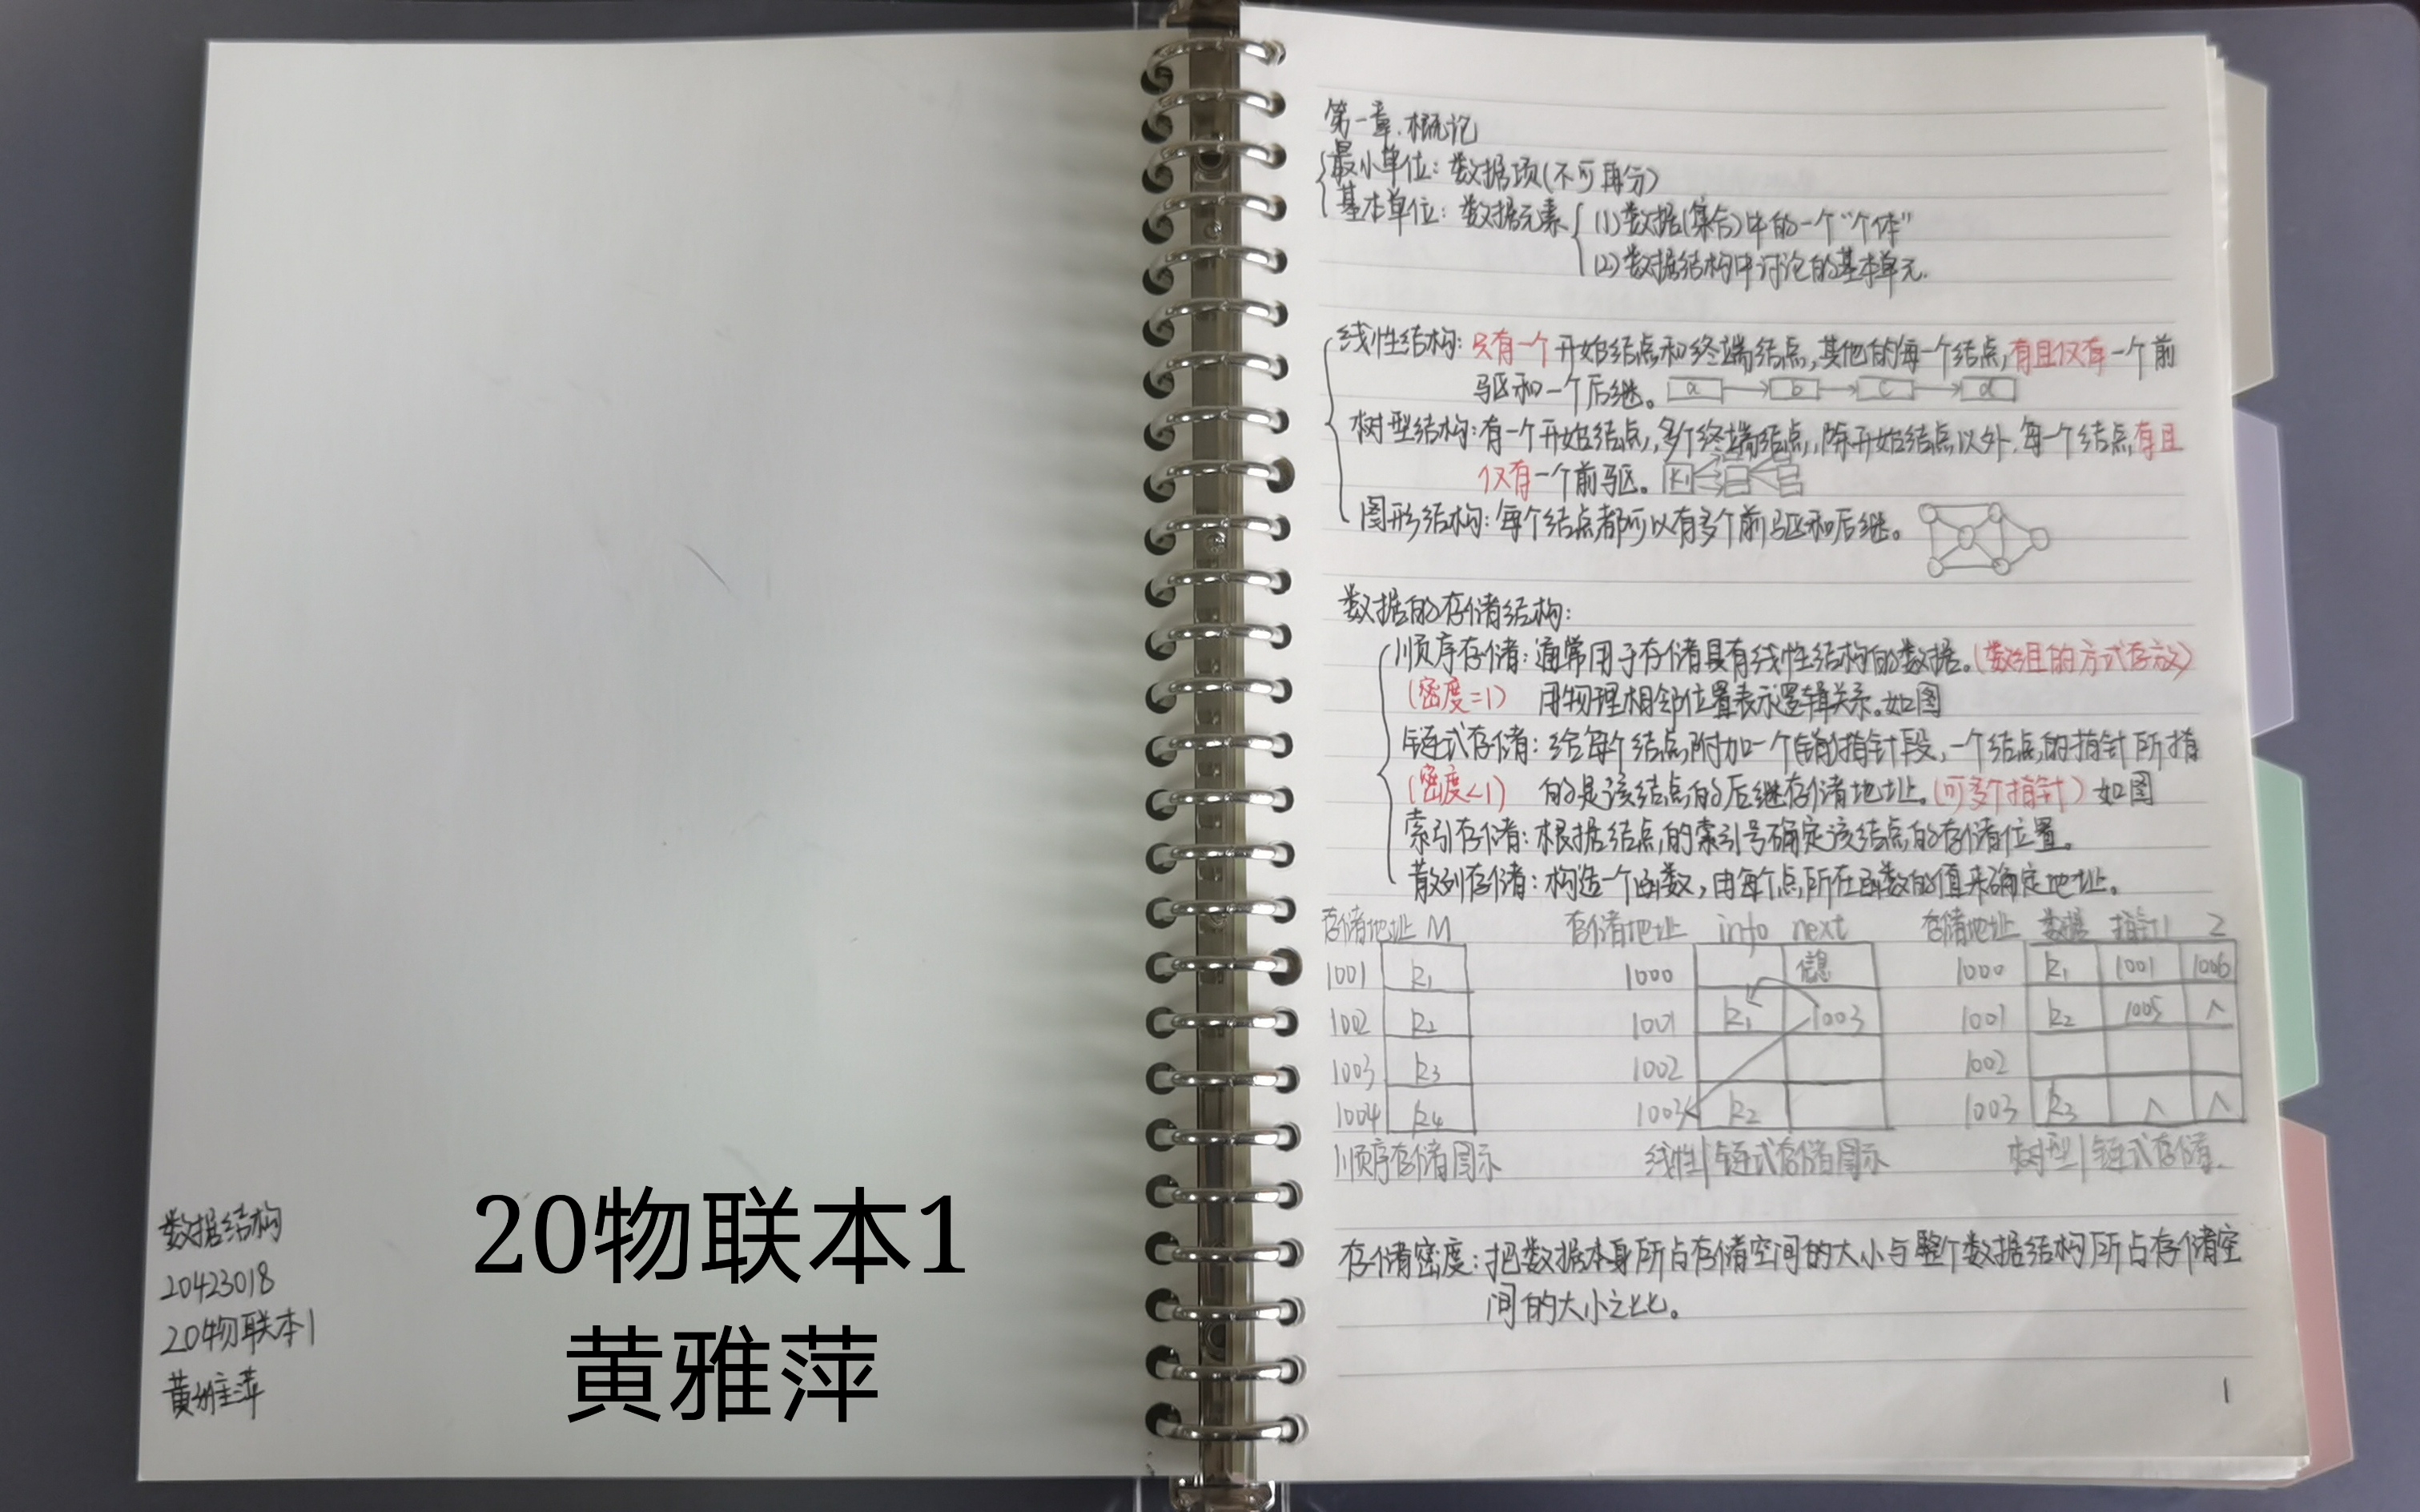 数据结构
20423018
20物联本1
黄雅萍
20物联本1
黄雅萍
第一章.概论
最小单位：数据项(不可再分)
基本单位：数据元素 (1)数据(集合)中的一个“个体”
(2)数据结构中讨论的基本单元.
线性结构：只有一个开始结点和终端结点,其他的每一个结点,有且仅有一个前
驱和一个后继。 a b c d
树型结构：有一个开始结点,多个终端结点,除开始结点以外,每一个结点有且
仅有一个前驱。 k1
图形结构：每个结点都可以有多个前驱和后继。
数据的存储结构：
顺序存储：通常用于存储具有线性结构的数据。(数组的方式存放)
(密度=1) 用物理相邻位置表示逻辑关系。如图
链式存储：给每个结点附加一个指针段,一个结点的指针所指
(密度<1) 的是该结点的后继存储地址。(可多个指针) 如图
索引存储：根据结点的索引号确定该结点的存储位置。
散列存储：构造一个函数,由每个点所在函数的值来确定地址。
存储地址 M 存储地址 info next 存储地址 数据 指针1 2
1001 k1 1000 信息 1000 k1 1001 1006
1002 k2 1001 k1 1003 1001 k2 1005 ∧
1003 k3 1002 1002
1004 k4 1003 k2 1003 k3 ∧ ∧
顺序存储图示 线性|链式存储图示 树型|链式存储.
存储密度：把数据本身所占存储空间的大小与整个数据结构所占存储空
间的大小之比。
1